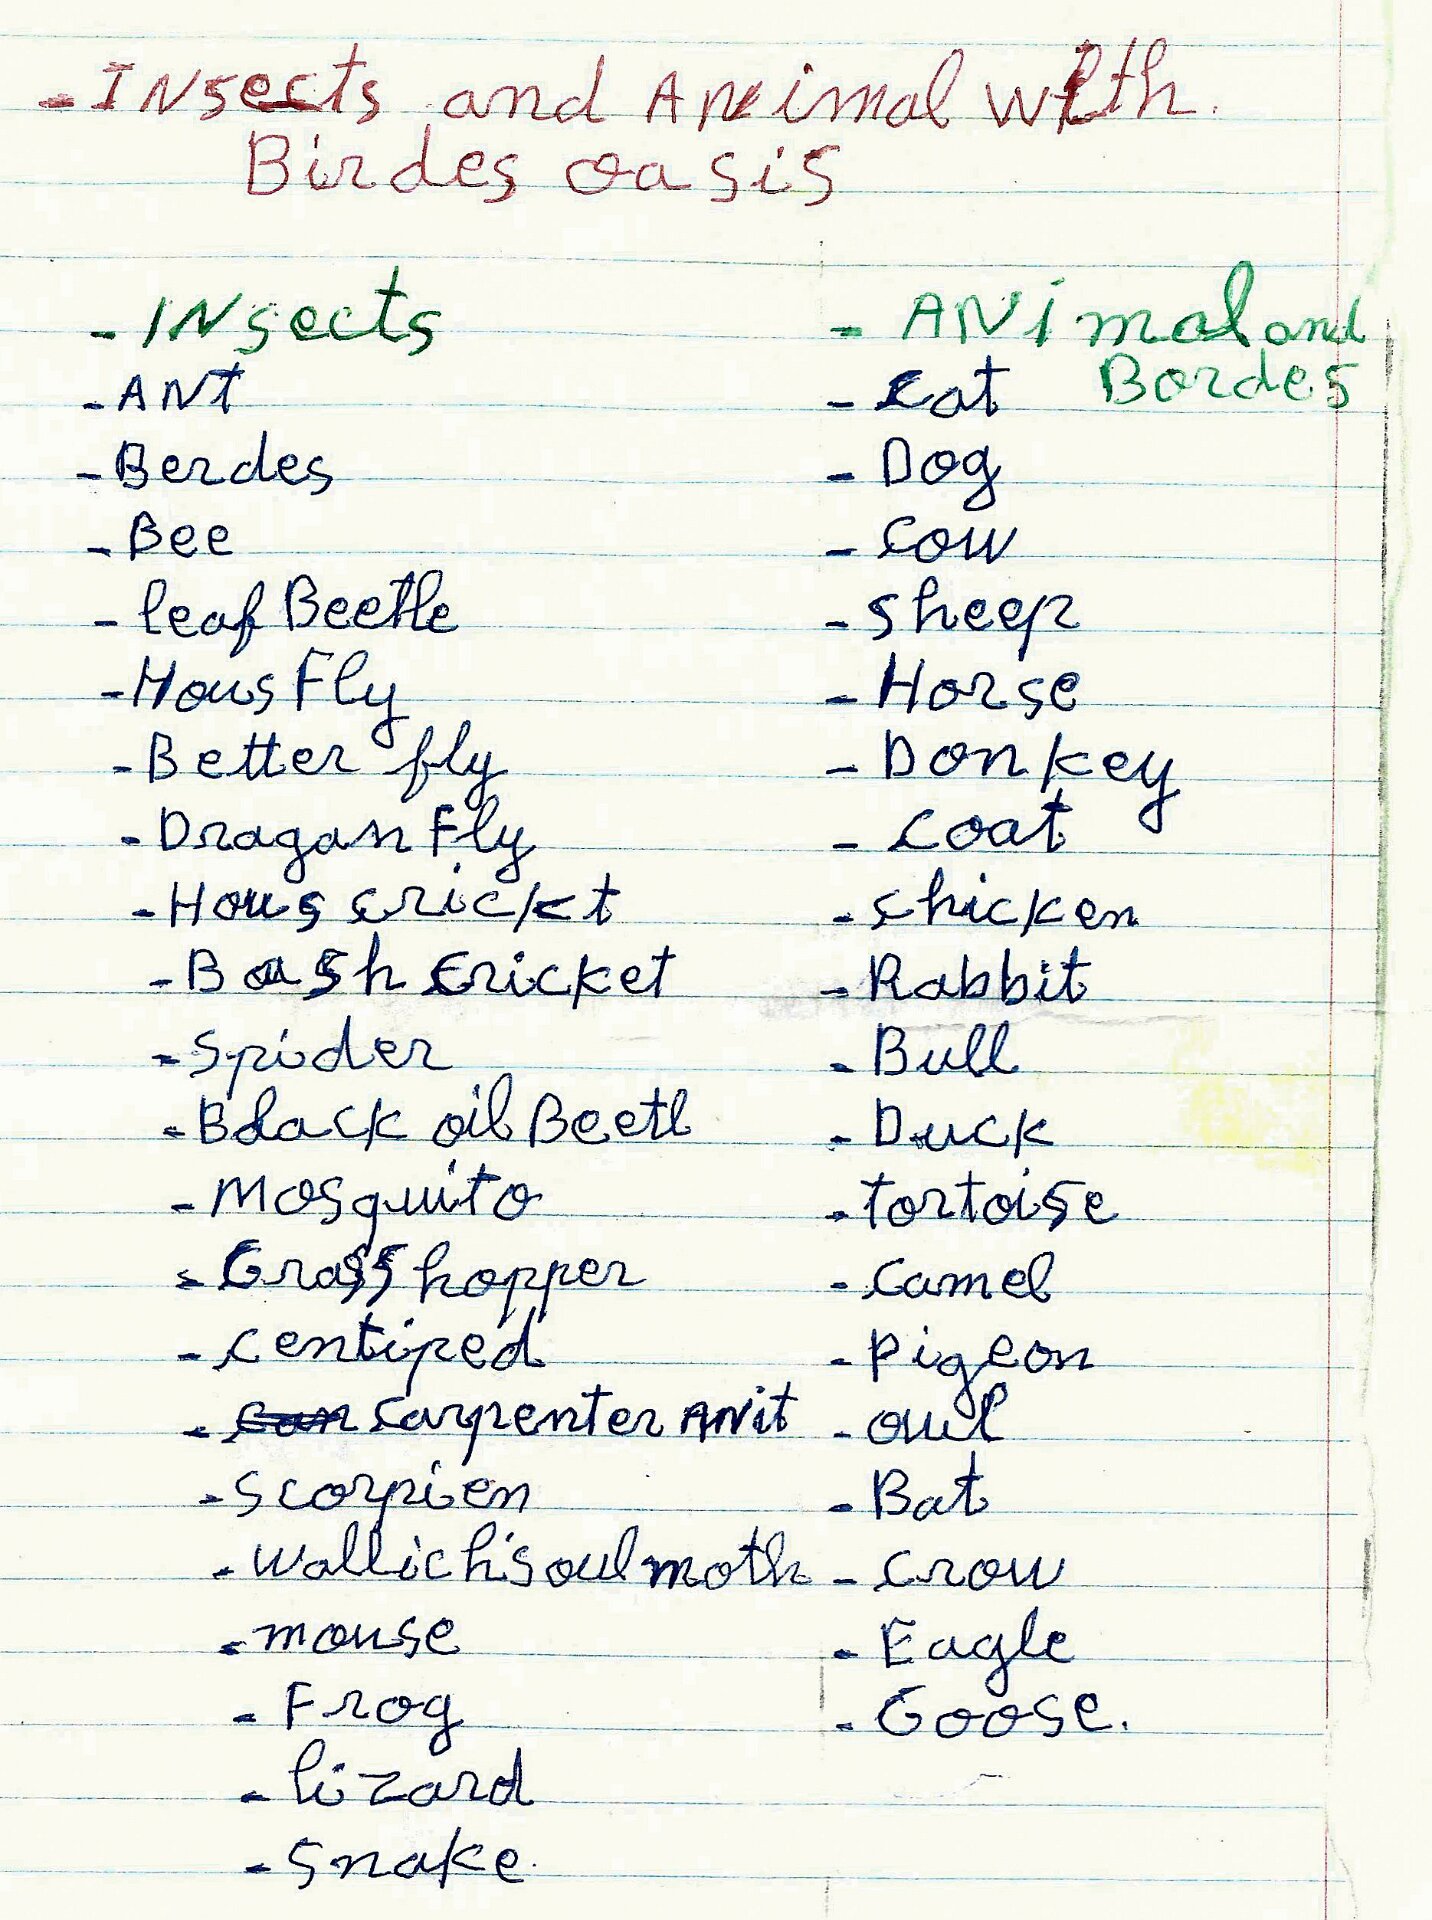 - INsects and ANimal with
Birdes oasis
- INsects
- ANT
- Berdes
- Bee
- leaf Beetle
- Hous Fly
- Better fly
- Dragan Fly
- Hous cricket
- Bash cricket
- Spider
- Black oil Beetl
- Mosquito
- Grass hopper
- centiped
- carpenter ANit
- scorpien
- wallich's oulmoth
- mouse
- Frog
- lizard
- Snake.
- ANimal and
Bordes
- cat
- Dog
- cow
- sheep
- Horse
- Donkey
- coat
- chicken
- Rabbit
- Bull
- Duck
- tortoise
- camel
- pigeon
- owl
- Bat
- crow
- Eagle
- Goose.